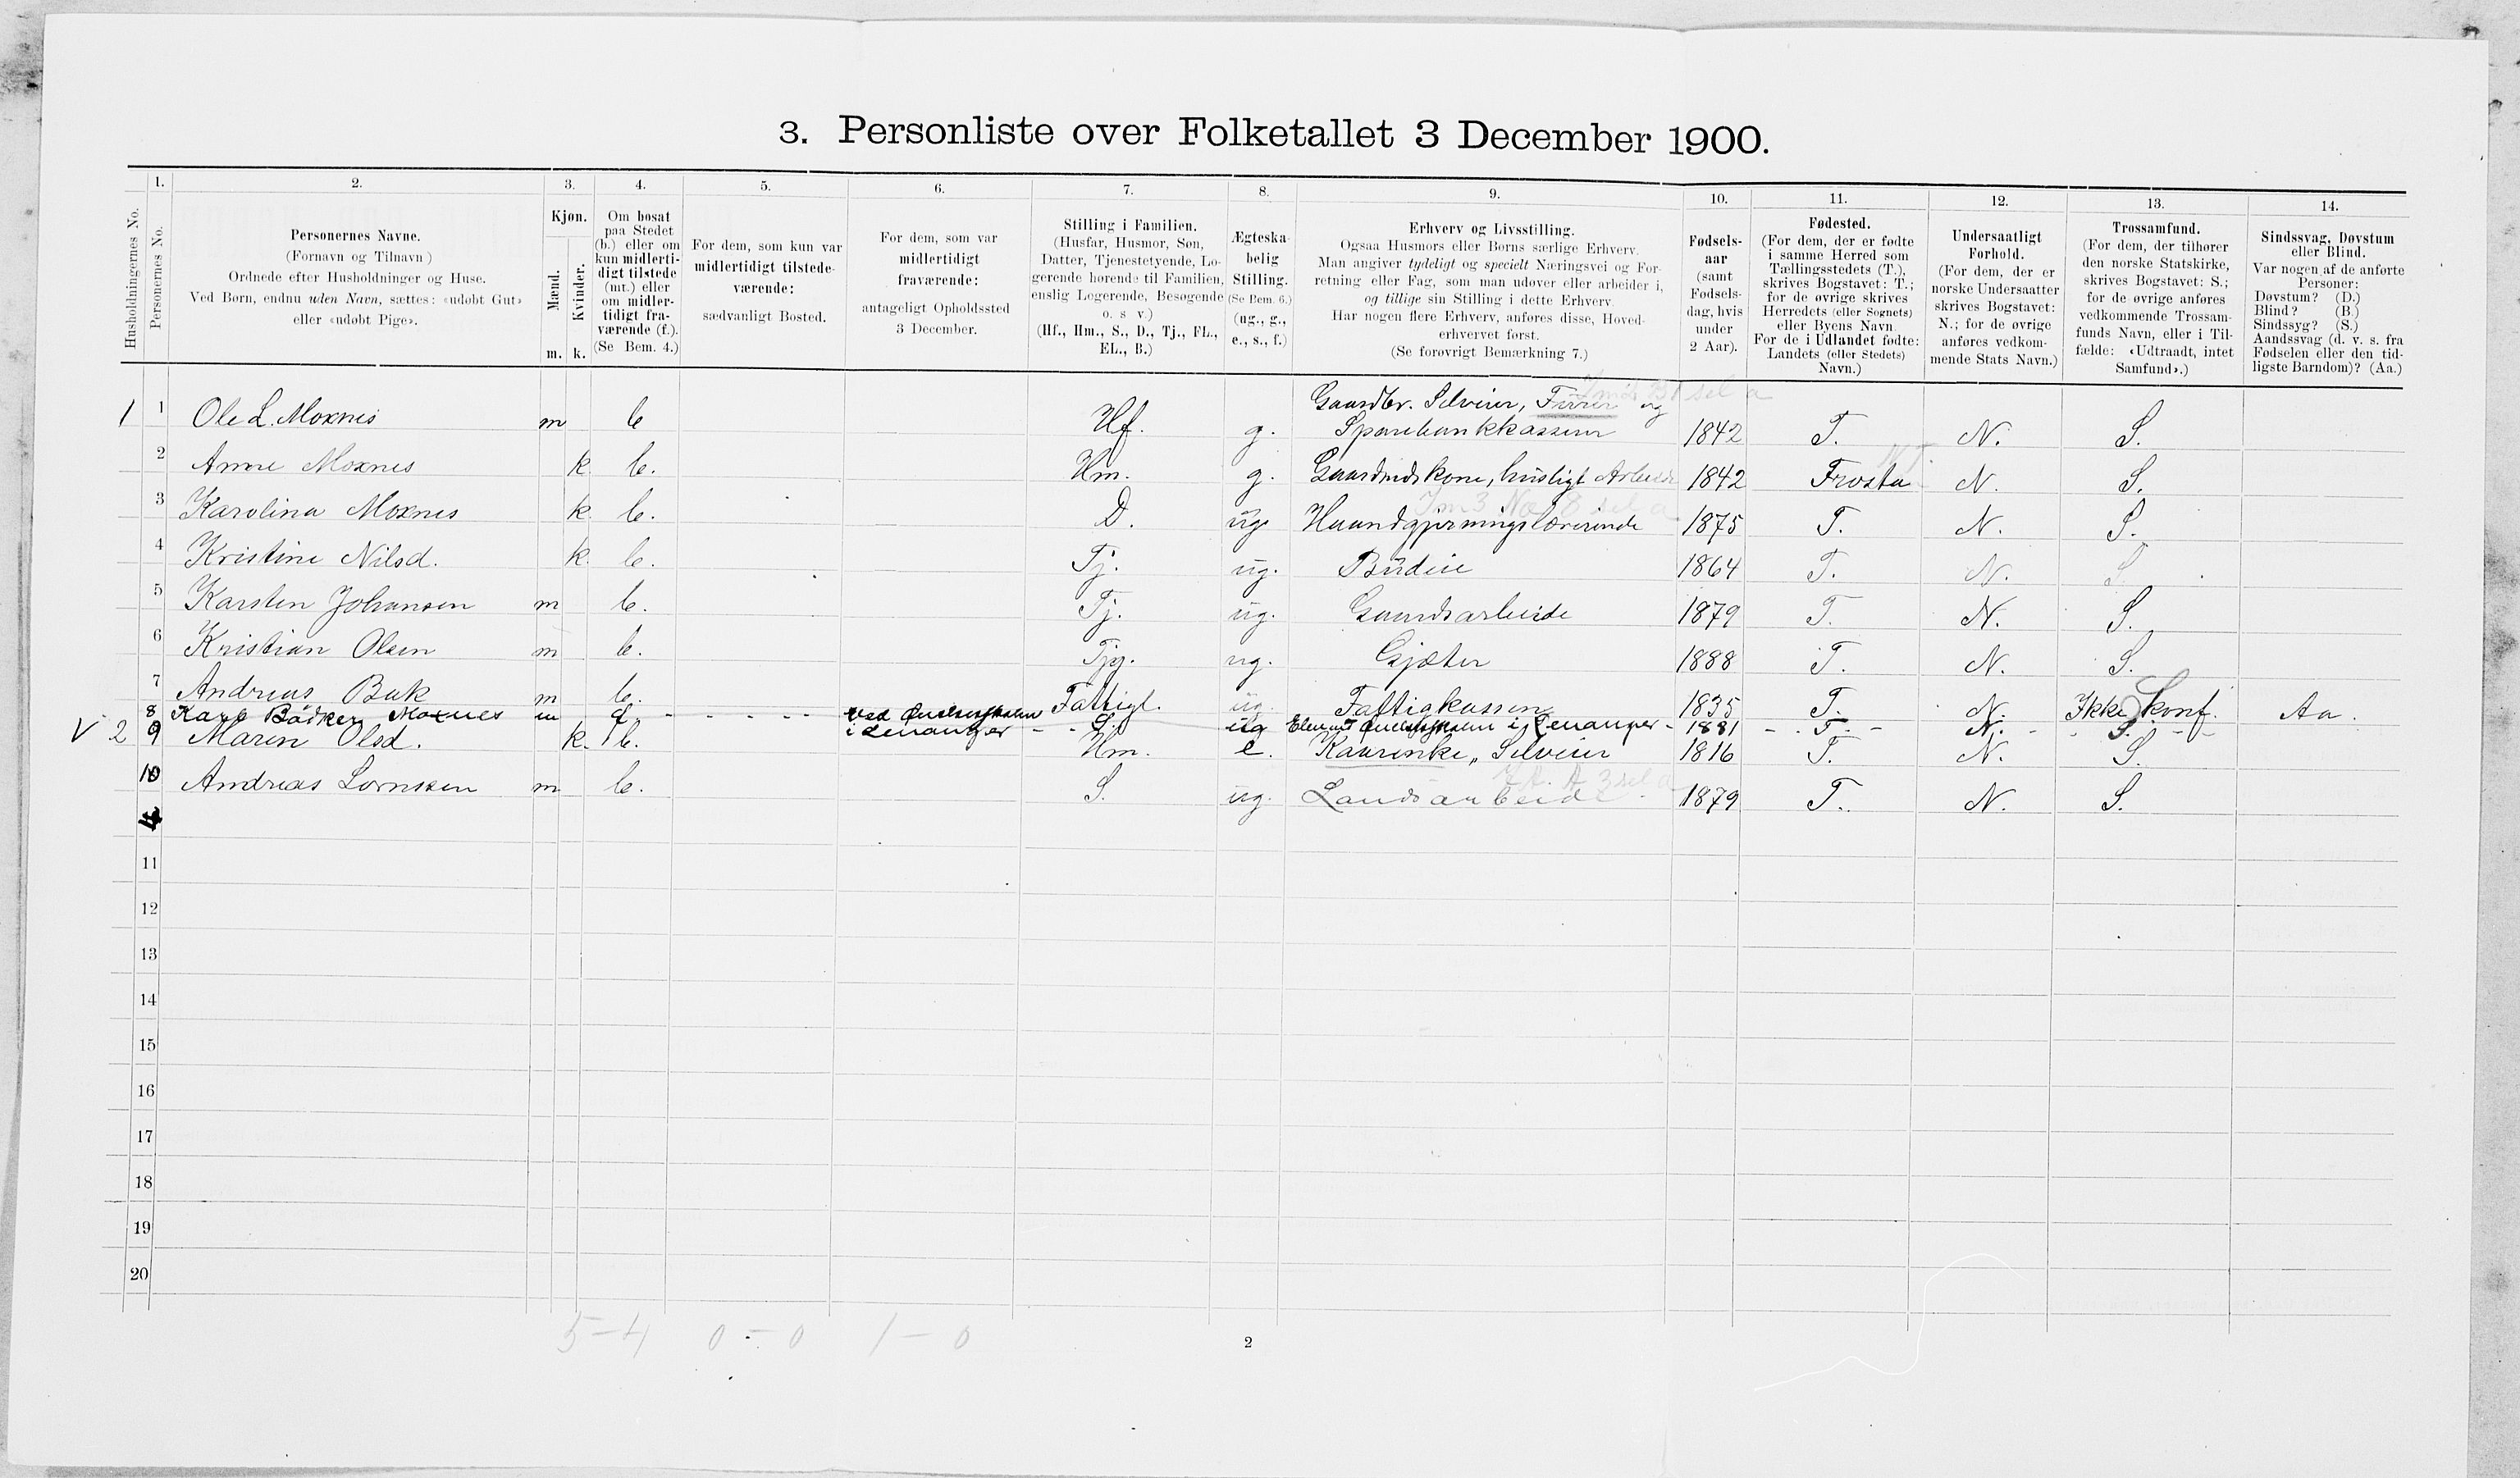 3. Personliste over Folketallet 3 December 1900.
Husholdningernes No.
1.
Personernes No.
2.
Personernes Navne.
(Fornavn og Tilnavn)
Ordnede efter Husholdninger og Huse.
Ved Børn, endnu uden Navn, sættes: «udøbt Gut»
eller «udøbt Pige».
3.
Kjøn.
Mænd.
Kvinder.
m. k.
4.
Om bosat
paa Stedet
(b.) eller om
kun midlerti-
digt tilstede
(mt.) eller
om midler-
tidigt fra-
værende (f.).
(Se Bem. 4.)
5.
For dem, som kun var
midlertidigt tilstede-
værende:
sædvanligt Bosted.
6.
For dem, som var
midlertidigt
fraværende:
antageligt Opholdssted
3 December.
7.
Stilling i Familien.
(Husfar, Husmor, Søn,
Datter, Tjenestetyende, Lo-
gerende hørende til Familien,
enslig Logerende, Besøgende
o. s v.)
(Hf., Hm., S., D., Tj., FL.,
EL., B.)
8.
Ægteska-
belig
Stilling.
(Se Bem. 6.)
(ug., g.,
e., s., f.)
9.
Erhverv og Livsstilling.
Ogsaa Husmors eller Børns særlige Erhverv.
Man angiver tydeligt og specielt Næringsvei og For-
retning eller Fag, som man udøver eller arbeider i,
og tillige sin Stilling i dette Erhverv.
Har nogen flere Erhverv, anføres disse, Hoved-
erhvervet først.
(Se forøvrigt Bemærkning 7.)
10.
Fødsels-
aar
(samt
Fødsels-
dag, hvis
under
2 Aar).
11.
Fødested.
(For dem, der er fødte
i samme Herred som
Tællingsstedets (T.),
skrives Bogstavet: T.;
for de øvrige skrives
Herredets (eller Sognets)
eller Byens Navn
For de i Udlandet fødte:
Landets (eller Stedets)
Navn.)
12.
Undersaatligt
Forhold.
(For dem, der er
norske Undersaatter
skrives Bogstavet:
N.; for de øvrige
anføres vedkom-
mende Stats Navn.)
13.
Trossamfund.
(For dem, der tilhører
den norske Statskirke,
skrives Bogstavet: S.;
for de øvrige anføres
vedkommende Trossam-
funds Navn, eller i Til-
fælde: «Udtraadt, intet
Samfund».)
14.
Sindssvag, Døvstum
eller Blind.
Var nogen af de anførte
Personer:
Døvstum? (D.)
Blind? (B.)
Sindssyg? (S.)
Aandssvag (d. v. s. fra
Fødselen eller den tid-
ligste Barndom)? (Aa.)
1 1 Ole L. Moxnes m b Hf. g. Gaardbr. Selveier, Firrer og Sparebankkasserer 1842 T. N. S.
2 Anne Moxnes k b. Hm. g. Gaardmdskone, husligt Arbeide 1842 Frosta N. S.
3 Karolina Moxnes k b. D. ug Haandgjerningslærerinde 1875 T. N. S.
4 Kristine Nilsd. k b. Tj. ug. Budeie 1864 T. N. S.
5 Karsten Johansen m b. Tj. ug. Gaardsarbeide 1879 T. N. S.
6 Kristian Olsen m b. Tjg. ug. Gjæter 1888 T. N. S.
7 Andreas Bak m b. Fattigl. ug. Fattigkassen 1835 T. N. Ikke konf. Aa.
8 Karl Bödker Moxnes m f. - - - - - Ved i Levanger - - S. ug Elev ved i Levanger - 1881 - . T. - N. - - S. - -
V 2 9 Maren Olsd. k. b. Hm. e. Kaarenke, Selveier 1816 T. N. S.
10 Andreas Lornsen m b. S. ug. Landsarbeide 1879 T. N. S.
11
12
13
14
15
16
17
18
19
20
5-4 0-0 1-0
2